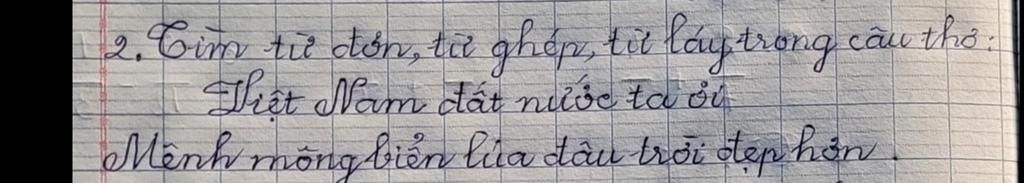 2. Tìm từ đơn, từ ghép, từ láy trong câu thơ:
Việt Nam đất nước ta ơi
Mênh mông biển lúa đâu trời đẹp hơn.